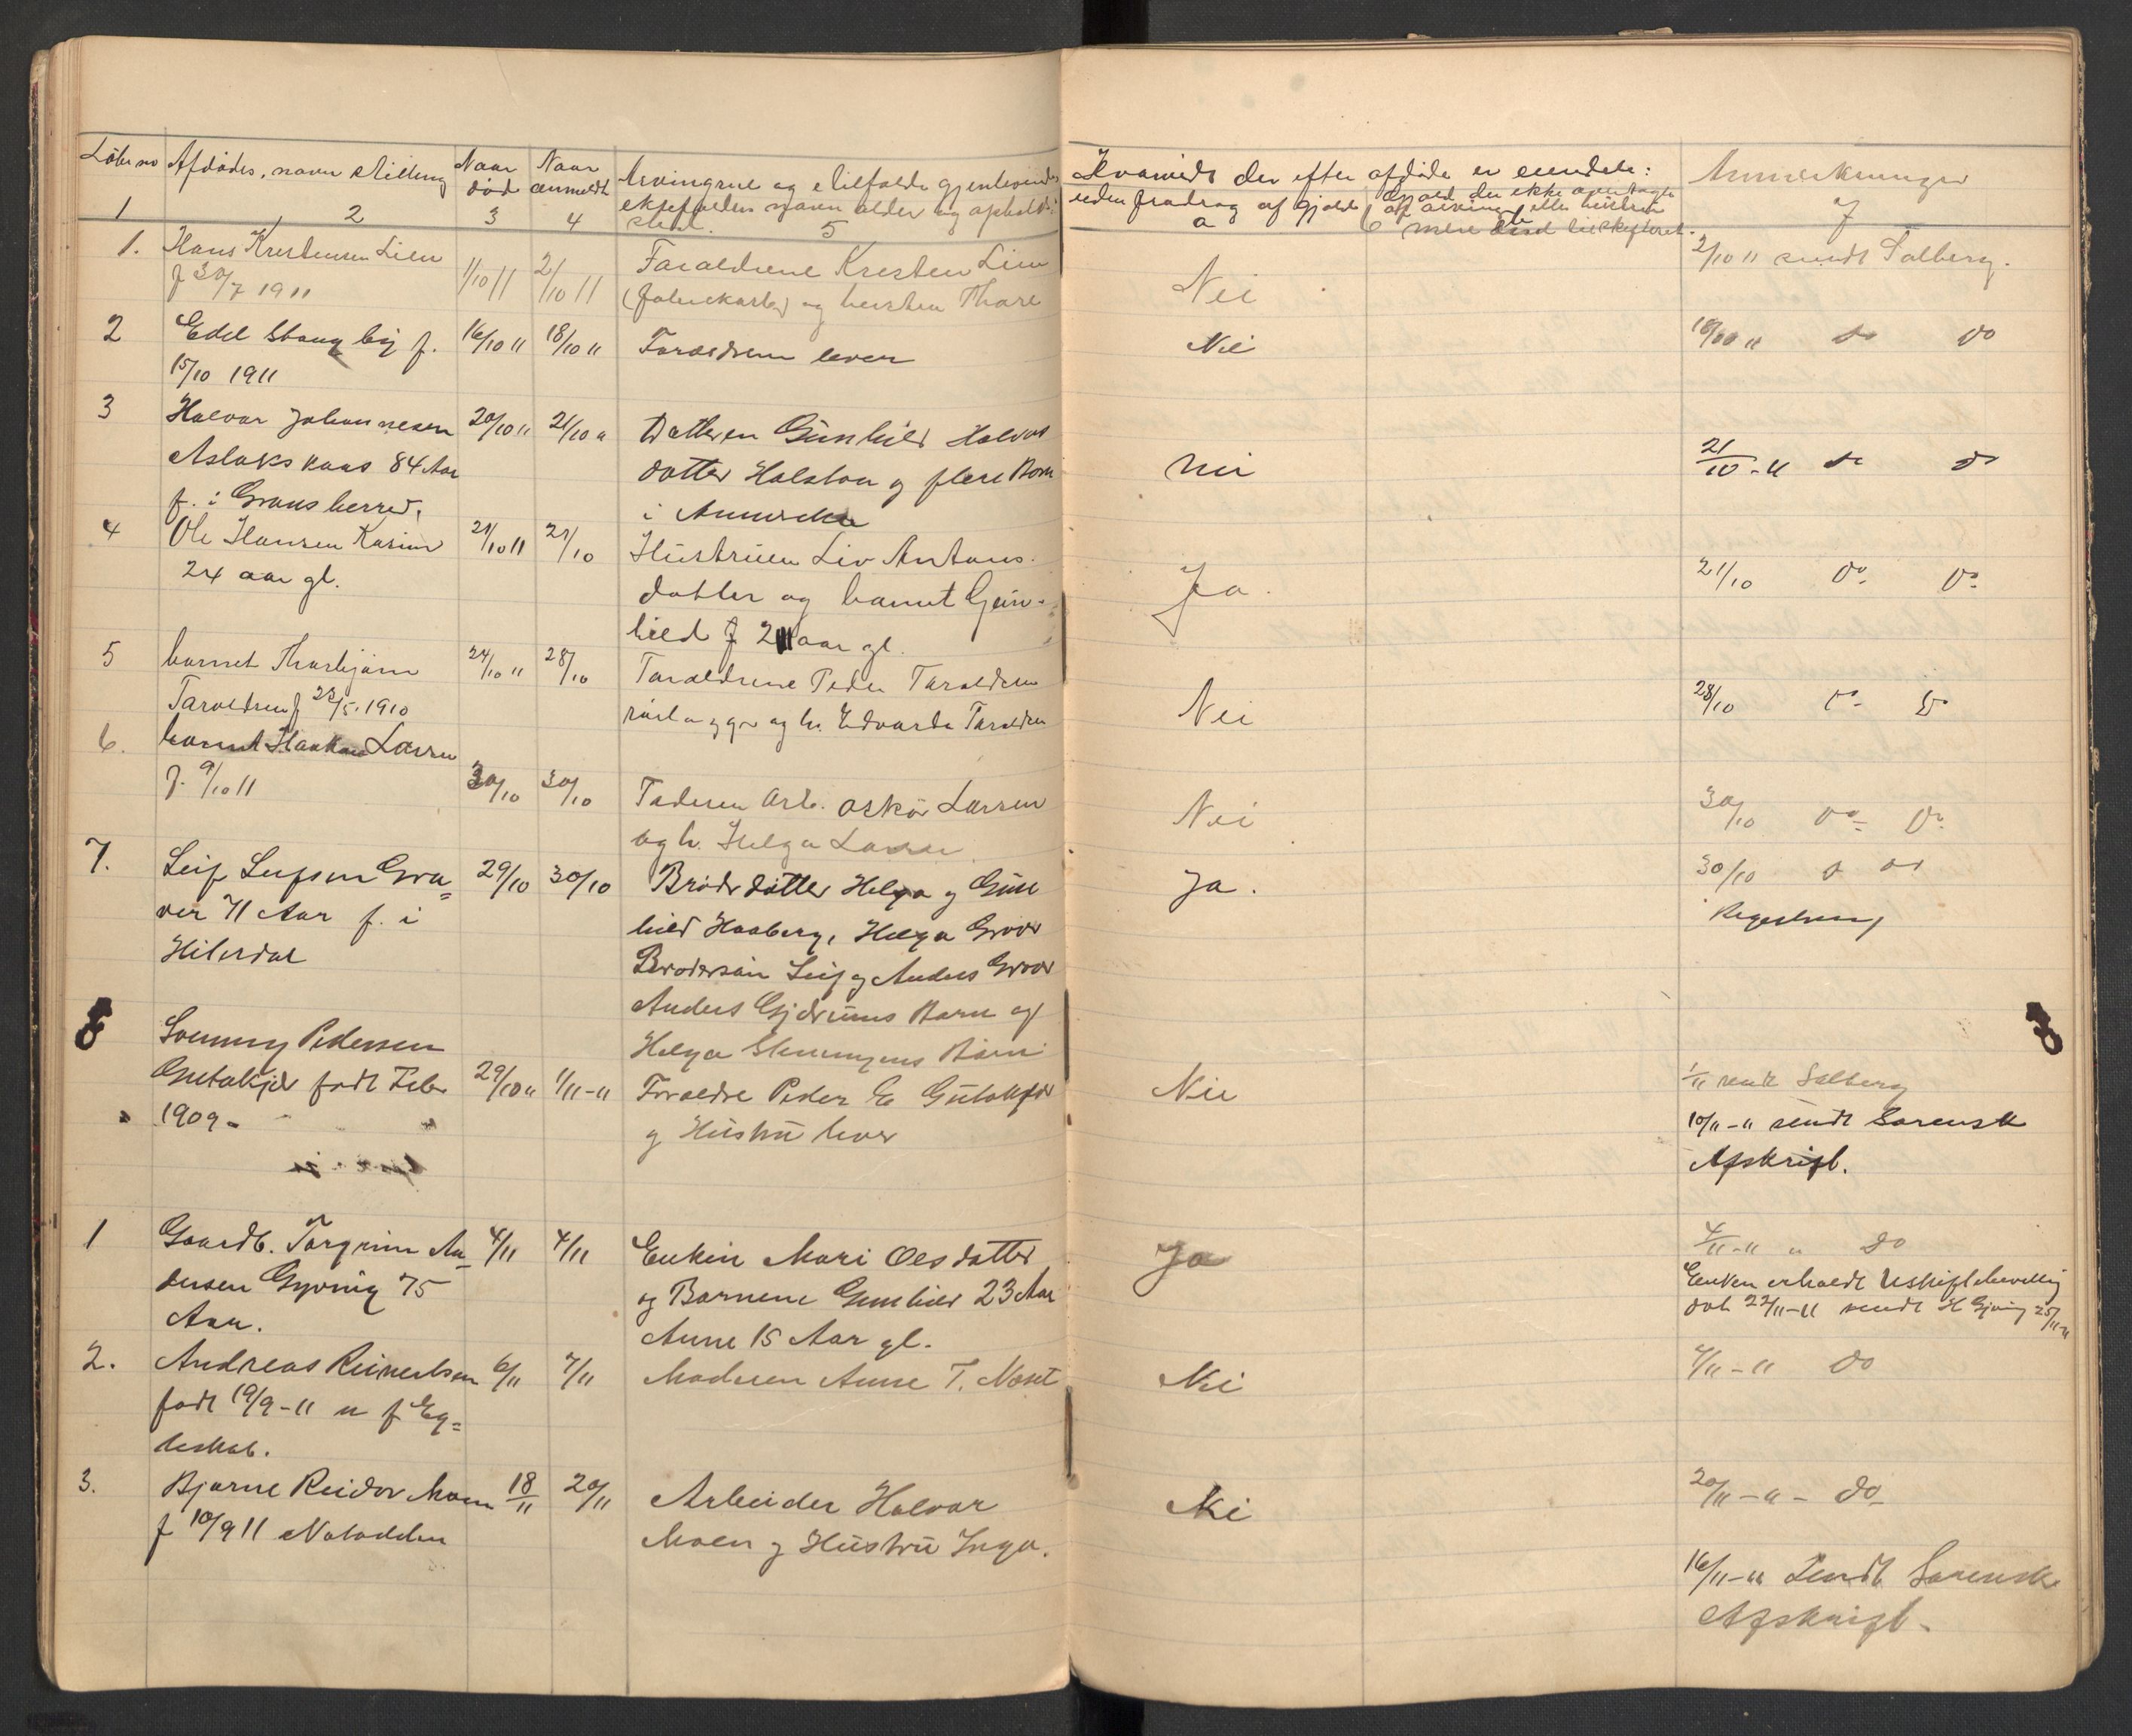 Løbe no Afdødes, navn stilling Naar død Naar anmeldt Arvingene og tilfælde gjenlevende
ektefælles navn alder og opholds-
sted.
1 2 3 4 5
Hvorvidt der efter afdøde er eiendele:
uden fradrag af gjæld
a
Anmerkninger
7
1. Hans Krestensen Lien 1/10 11 2/10 11 Foraldrene Kresten Lien Nei 2/10 11 sendt Solberg.
f 30/7 1911 og hustru Thore
2 Edel Stang f. 16/10 11 18/10 11 Foræدrene lever Nei 18/10 11 do do
15/10 1911
3 Halvor Johannesen 20/10 11 21/10 11 Datteren Gunhild Halvors Nei 21/10-11 do do
Aslakskaas 84 Aar datter Holstou og flere Børn
f. i Gransherred. i Amerika
4 Ole Hansen 21/10 11 21/10 Hustruen Liv Antons- Ja. 21/10 do do
24 aar gl. datter og barnet Gun-
hild f 2 aar gl.
5 barnet Thorbjørn 24/10 11 28/10 Foraldrene Peder Taraldsen Nei 28/10 do do
Taraldsen f 23/5. 1910 og h. Edvarda Taraldsen
6. barnet Haakon Larsen
f. 9/10 11 30/10 30/10 Faderen Arb. Oskar Larsen Nei 30/10 do do
og h. Helga Larsen
7. Leif Leifsen Gra= 29/10 30/10 Broderdøtter Helga og Gun Ja. 30/10 do do
ver 71 Aar f. i hild Haaberg, Helga Graver Registrering
Hitterdal Brodersøn Leif og Anders Graver
Anders Gjdrums Barn og
Helga Børn
8 Pedersen
født Feb. 29/10 11 1/11-11 Forældre Peder Nei 1/11 sendt Solberg
1909- og Hustru lever 10/11-11 sendt Sorensk
Afskrift.
1 Gaardb. Torgrim An= 4/11 4/11 Enken Mari Olsdatter Ja 4/11-11 " do
dersen Gyving 75 og Børnene Gunhild 23 Aar Enken erholdt Uskiftebevilling
Aar. Anne 15 Aar gl. dat 22/11-11 sendt H Gjving 25/11-11
2. Andreas Reinertsen 6/11 7/11 Moderen Anne T. Næset Nei 7/11-11 do
født 19/9-11 u f Eg=
teskab.
3. Bjarne Reidar Moen 18/11 20/11 Arbeider Halvor Nei 20/11-11- do-
f 10/9 11 Notodden Moen og Hustru Inga.
16/11-11 Sendt Sorensk
Afskrift.